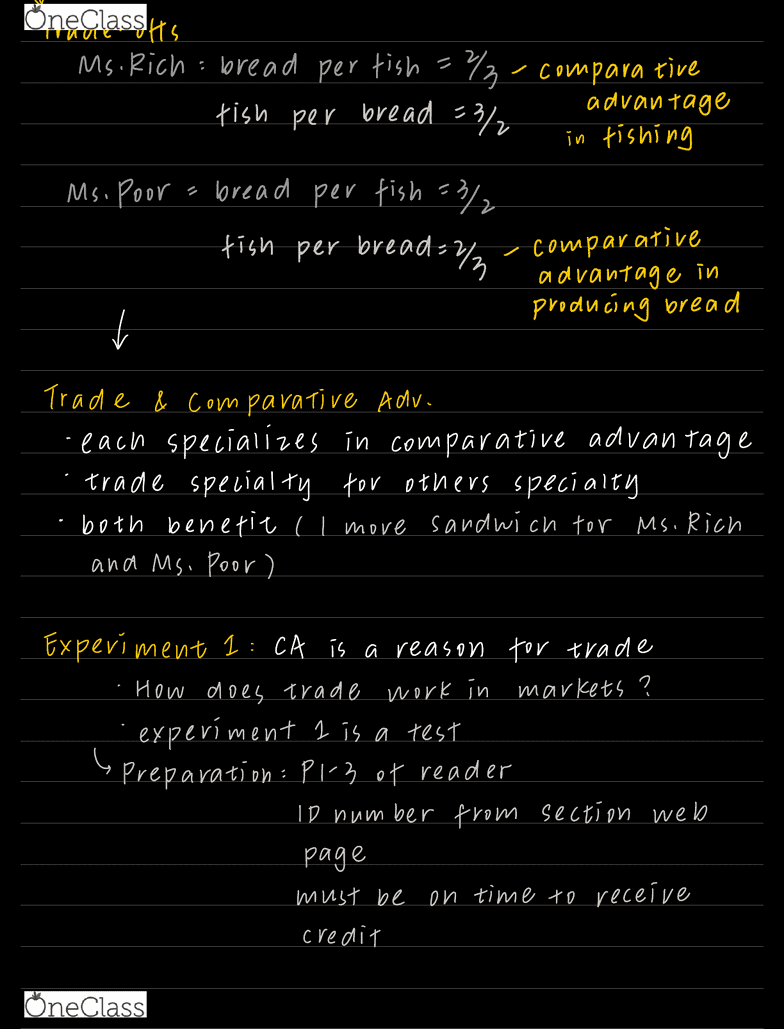 OneClass
Trade-offs
Ms. Rich : bread per fish = 2/3 – comparative
advantage
fish per bread = 3/2
in fishing
Ms. Poor = bread per fish = 3/2
fish per bread = 2/3 – comparative
advantage in
producing bread
↓
Trade & Comparative Adv.
· each specializes in comparative advantage
· trade specialty for others specialty
· both benefit ( 1 more sandwich for Ms. Rich
and Ms. Poor )
Experiment 1 : CA is a reason for trade
· How does trade work in markets ?
· experiment 1 is a test
↳ Preparation : P1-3 of reader
ID number from section web
page
must be on time to receive
credit
OneClass